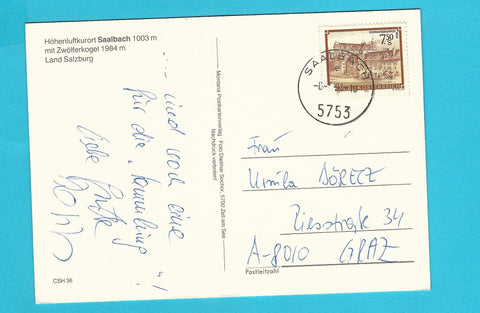 Höhenluftkurort Saalbach 1003 m
mit Zwölferkogel 1984 m
Land Salzburg
.... und noch eine
für die "Sammlung"!
Liebe Grüße
Montana Postkartenverlag · Foto Dietmar Sochor, 5700 Zell am See
Nachdruck verboten!
CSH 36
7.50
SAALBACH
5753
Frau
Ursula
34
A-8010 GRAZ
Postleitzahl